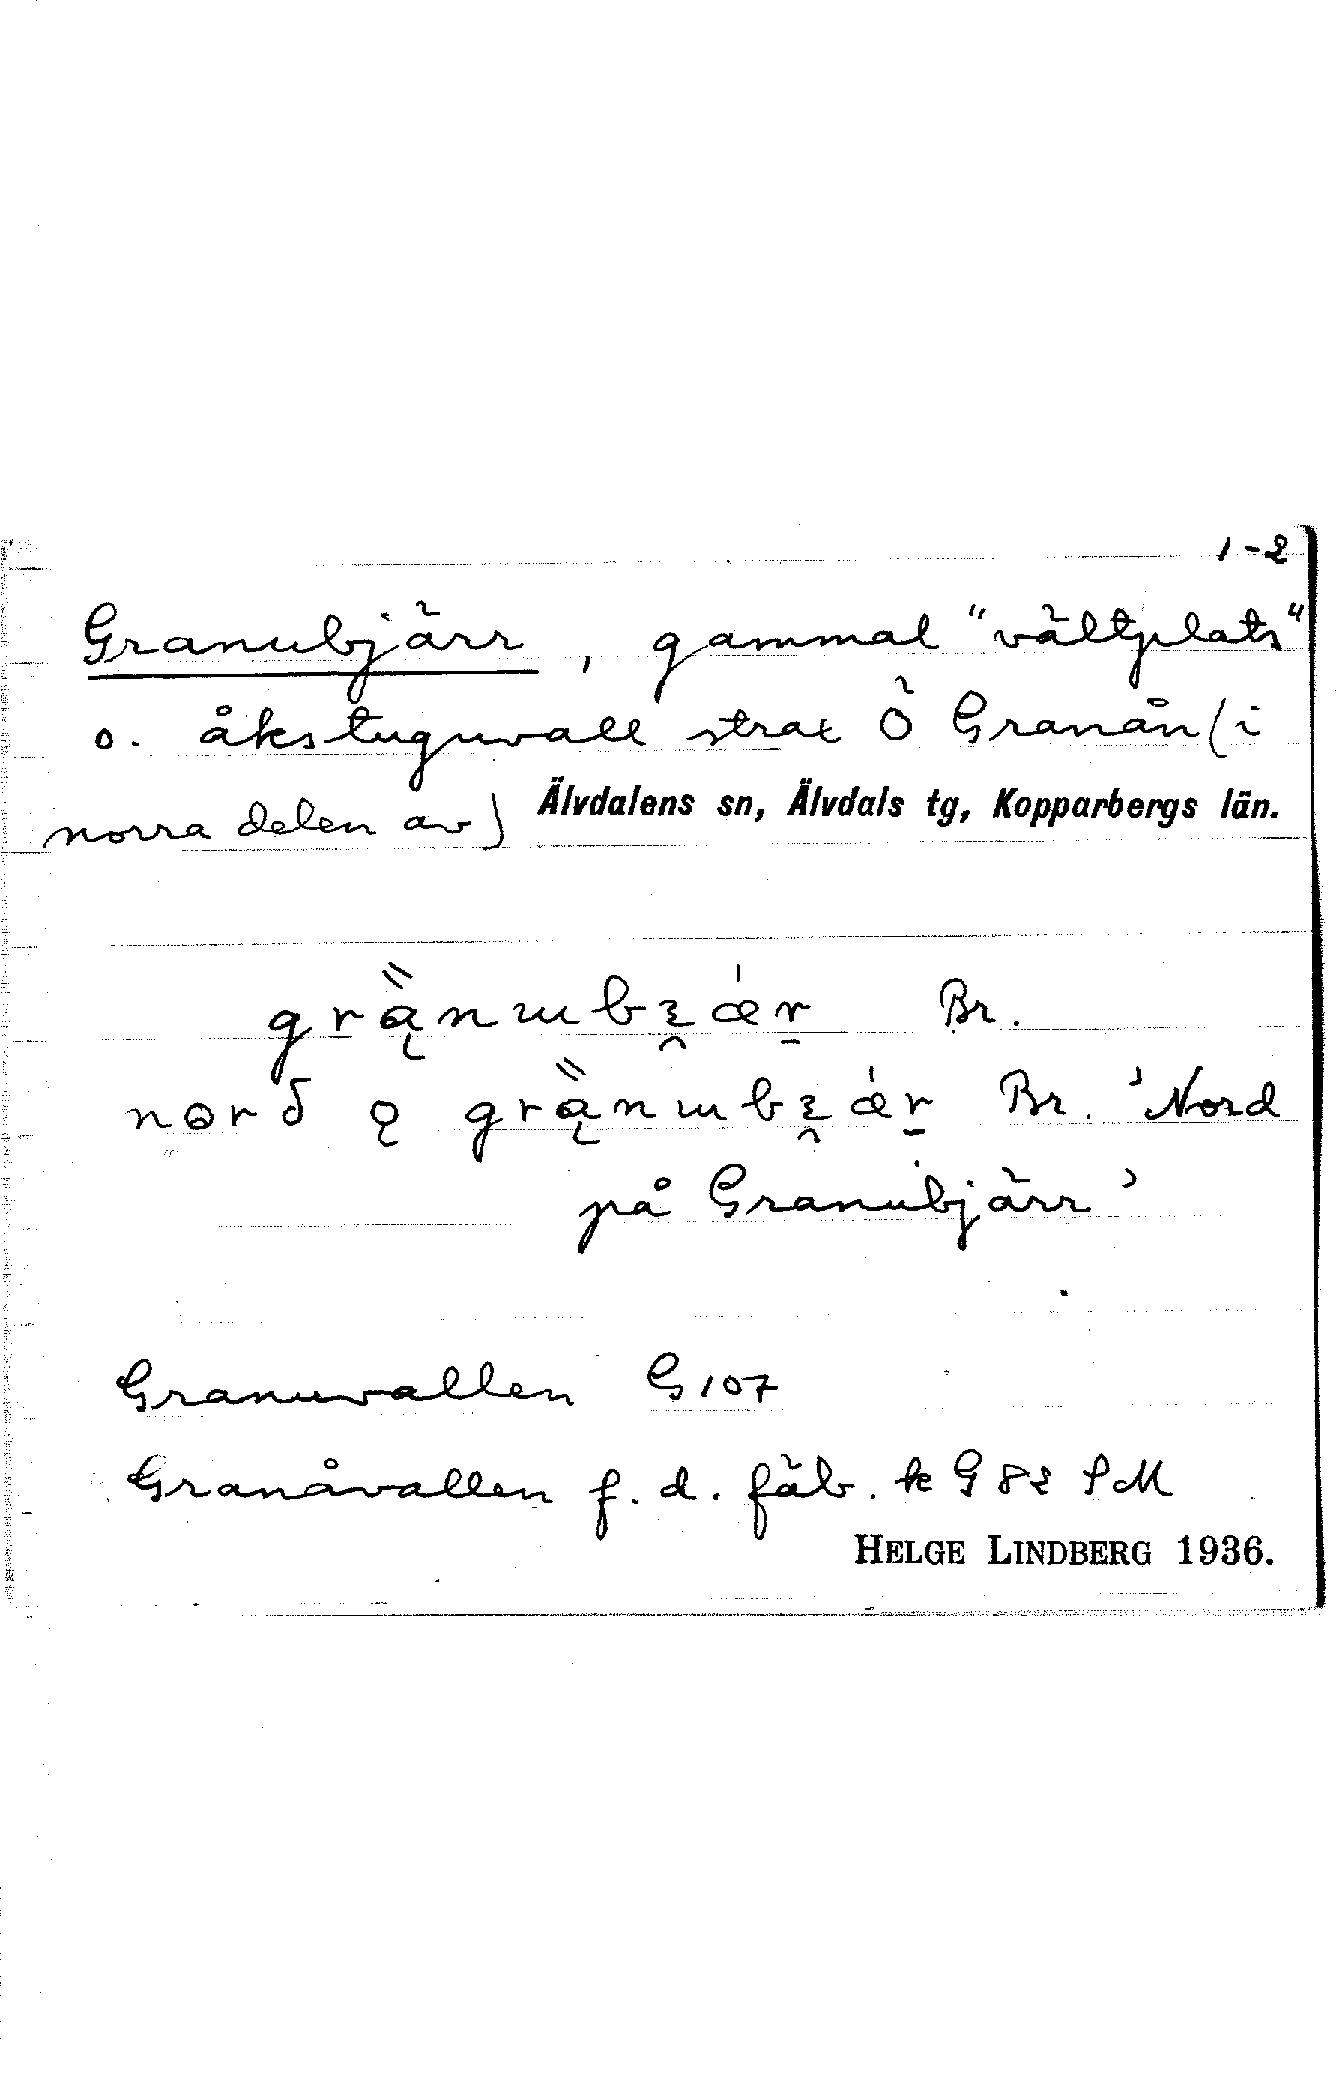 1-2
Granubjärr, gammal "vältplats"
o. åkstuguvall strax Ö Granån (i
norra delen av) Älvdalens sn, Älvdals tg, Kopparbergs län.
Br.
Br. 'Nord
på Granubjärr'
Granuvallen G107
Granåvallen f. d. fäb. k G 82 SM
HELGE LINDBERG 1936.